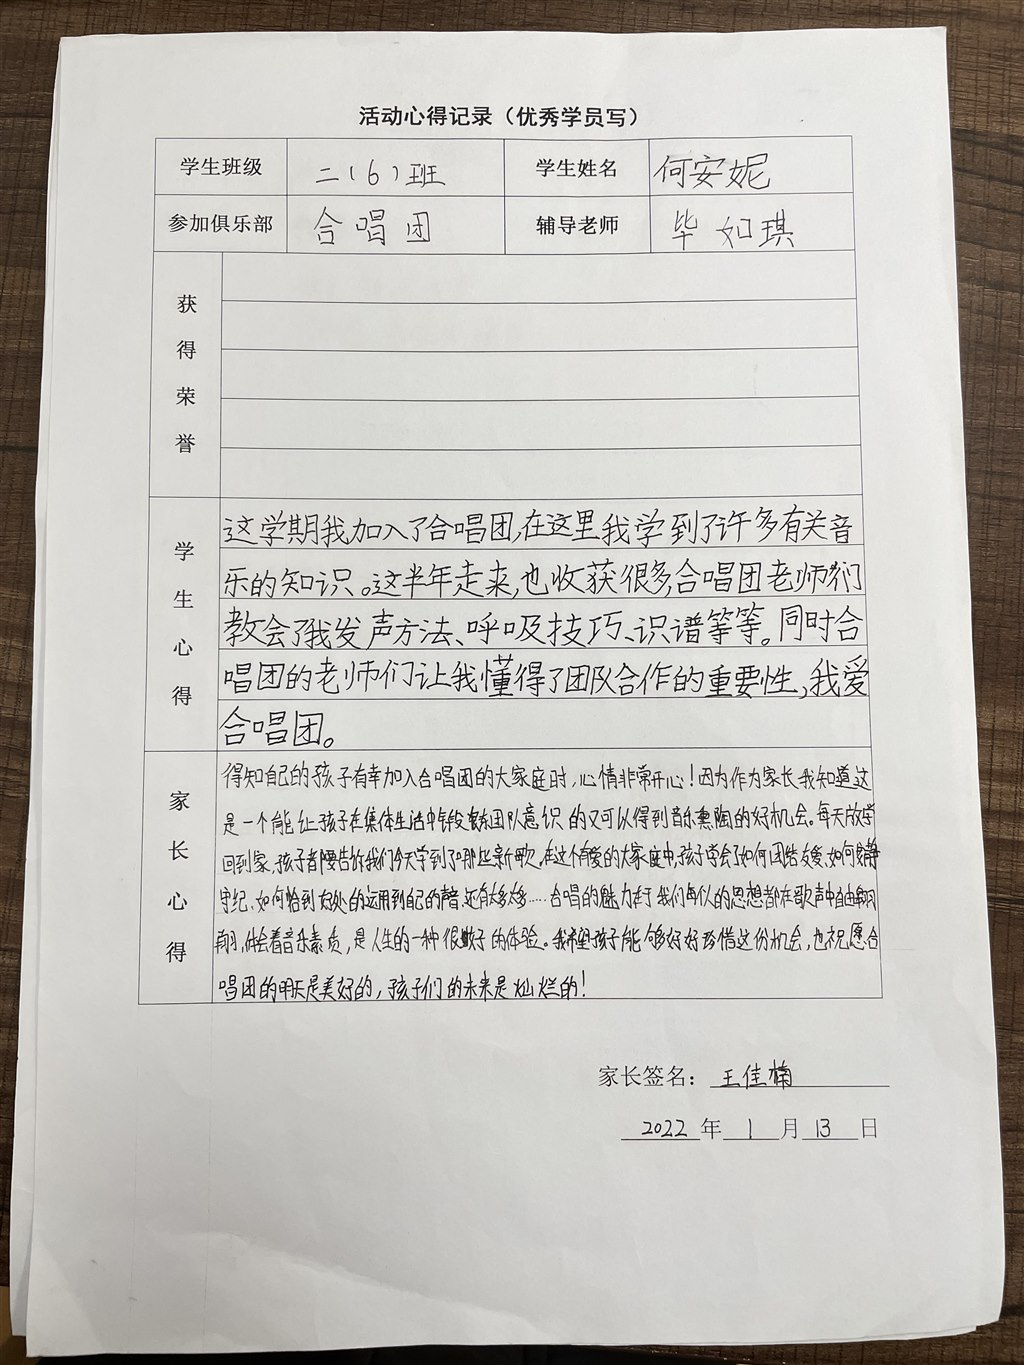 活动心得记录（优秀学员写）
学生班级 二（6）班 学生姓名 何安妮
参加俱乐部 合唱团 辅导老师 毕如琪
获得荣誉
学生心得
这学期我加入了合唱团,在这里我学到了许多有关音
乐的知识。这半年走来,也收获很多,合唱团老师们
教会了我发声方法、呼吸技巧、识谱等等。同时合
唱团的老师们让我懂得了团队合作的重要性,我爱
合唱团。
家长心得
得知自己的孩子有幸加入合唱团的大家庭时,心情非常开心！因为作为家长我知道这
是一个能让孩子在集体生活中锻炼团队意识的又可以得到音乐熏陶的好机会。每天放学
回到家,孩子都要告诉我们今天学到了哪些新歌,在这个有爱的大家庭中,孩子学会了如何团结友爱、如何安静
守纪、如何恰到好处的运用到自己的声音,还有太多太多……合唱的魅力在于我们每个人的思想都在歌声中自由翱
翔,体会着音乐素质，是人生的一种很好的体验。我希望孩子能够好好珍惜这份机会,也祝愿合
唱团的明天是美好的，孩子们的未来是灿烂的！
家长签名：王佳楠
2022年1月13日